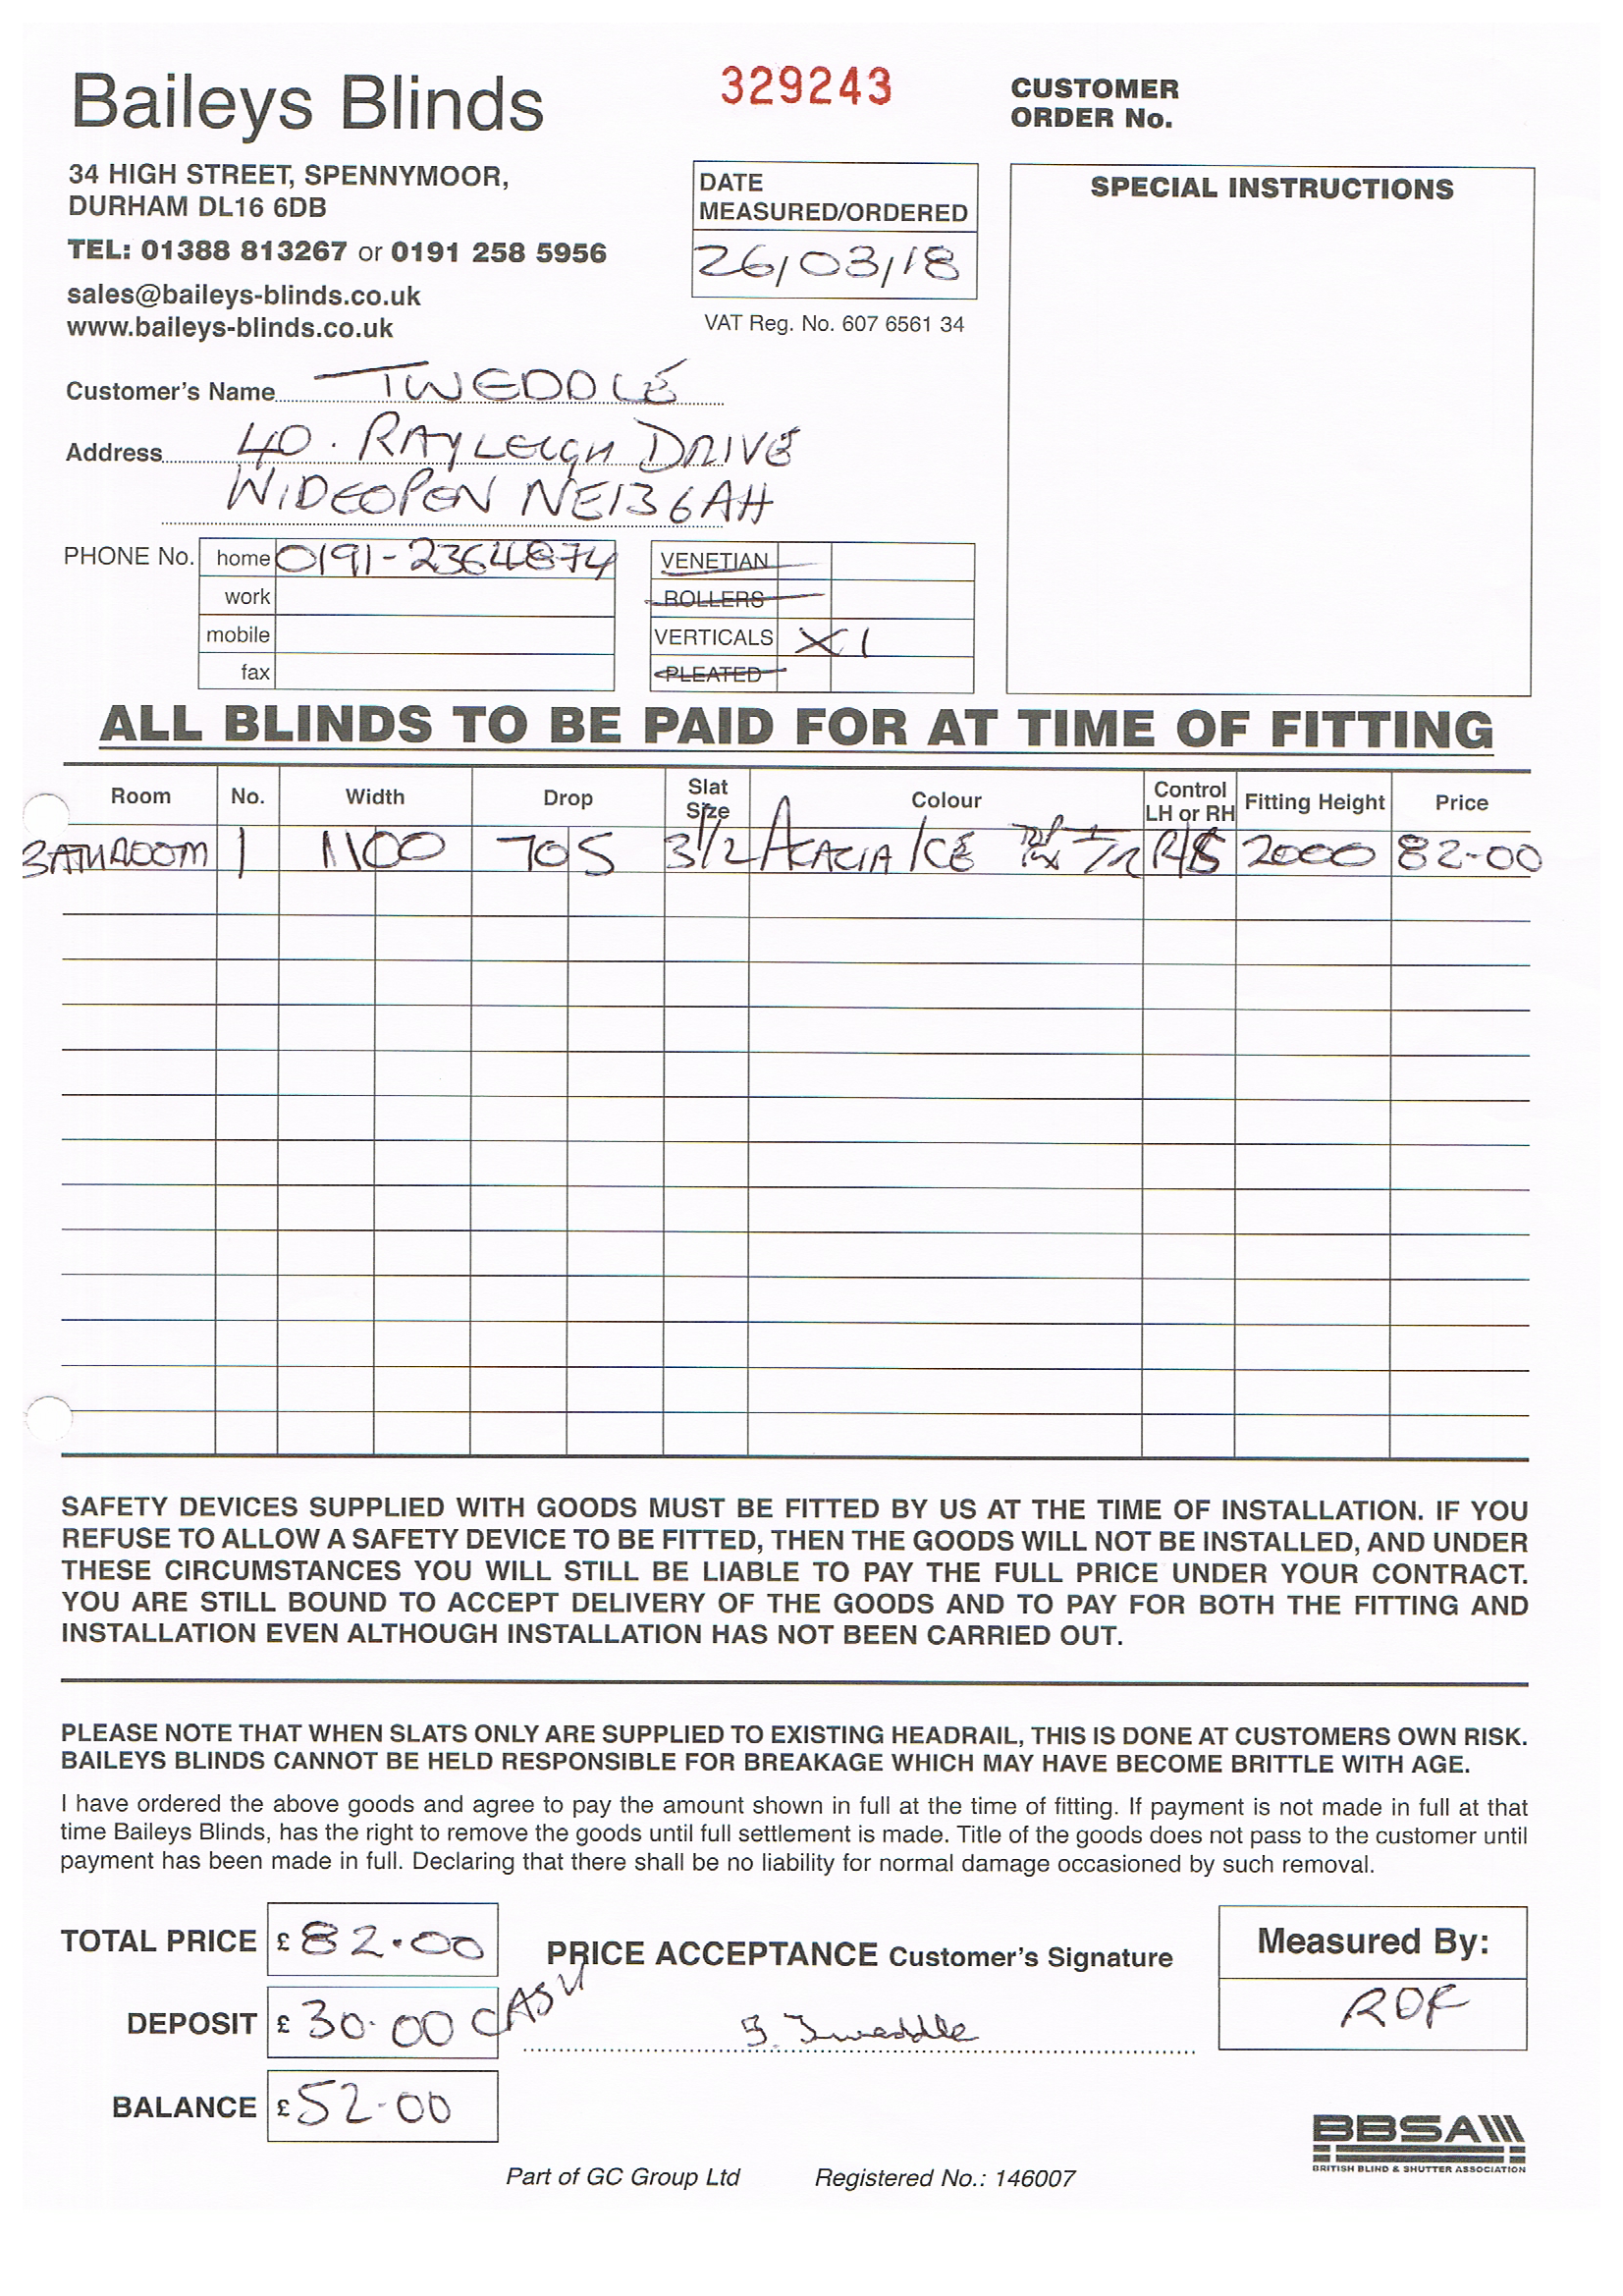 Baileys Blinds
329243
CUSTOMER
ORDER No.
34 HIGH STREET, SPENNYMOOR,
DURHAM DL16 6DB
TEL: 01388 813267 or 0191 258 5956
sales@baileys-blinds.co.uk
www.baileys-blinds.co.uk
DATE
MEASURED/ORDERED
26/03/18
VAT Reg. No. 607 6561 34
SPECIAL INSTRUCTIONS
Customer's Name TWEDDLE
Address 40. RAYLEIGH DRIVE
WIDEOPEN NE13 6AH
PHONE No. home 0191-2364874
work
mobile
fax
VENETIAN
ROLLERS
VERTICALS X 1
PLEATED
ALL BLINDS TO BE PAID FOR AT TIME OF FITTING
Room No. Width Drop Slat Size Colour Control LH or RH Fitting Height Price
BATHROOM 1 1100 705 3 1/2 ACACIA ICE 2000 82-00
SAFETY DEVICES SUPPLIED WITH GOODS MUST BE FITTED BY US AT THE TIME OF INSTALLATION. IF YOU
REFUSE TO ALLOW A SAFETY DEVICE TO BE FITTED, THEN THE GOODS WILL NOT BE INSTALLED, AND UNDER
THESE CIRCUMSTANCES YOU WILL STILL BE LIABLE TO PAY THE FULL PRICE UNDER YOUR CONTRACT.
YOU ARE STILL BOUND TO ACCEPT DELIVERY OF THE GOODS AND TO PAY FOR BOTH THE FITTING AND
INSTALLATION EVEN ALTHOUGH INSTALLATION HAS NOT BEEN CARRIED OUT.
PLEASE NOTE THAT WHEN SLATS ONLY ARE SUPPLIED TO EXISTING HEADRAIL, THIS IS DONE AT CUSTOMERS OWN RISK.
BAILEYS BLINDS CANNOT BE HELD RESPONSIBLE FOR BREAKAGE WHICH MAY HAVE BECOME BRITTLE WITH AGE.
I have ordered the above goods and agree to pay the amount shown in full at the time of fitting. If payment is not made in full at that
time Baileys Blinds, has the right to remove the goods until full settlement is made. Title of the goods does not pass to the customer until
payment has been made in full. Declaring that there shall be no liability for normal damage occasioned by such removal.
TOTAL PRICE £ 82.00
PRICE ACCEPTANCE Customer's Signature
Measured By:
DEPOSIT £ 30.00 CASH
Tweddle
BALANCE £ 52-00
BBSA
BRITISH BLIND & SHUTTER ASSOCIATION
Part of GC Group Ltd Registered No.: 146007